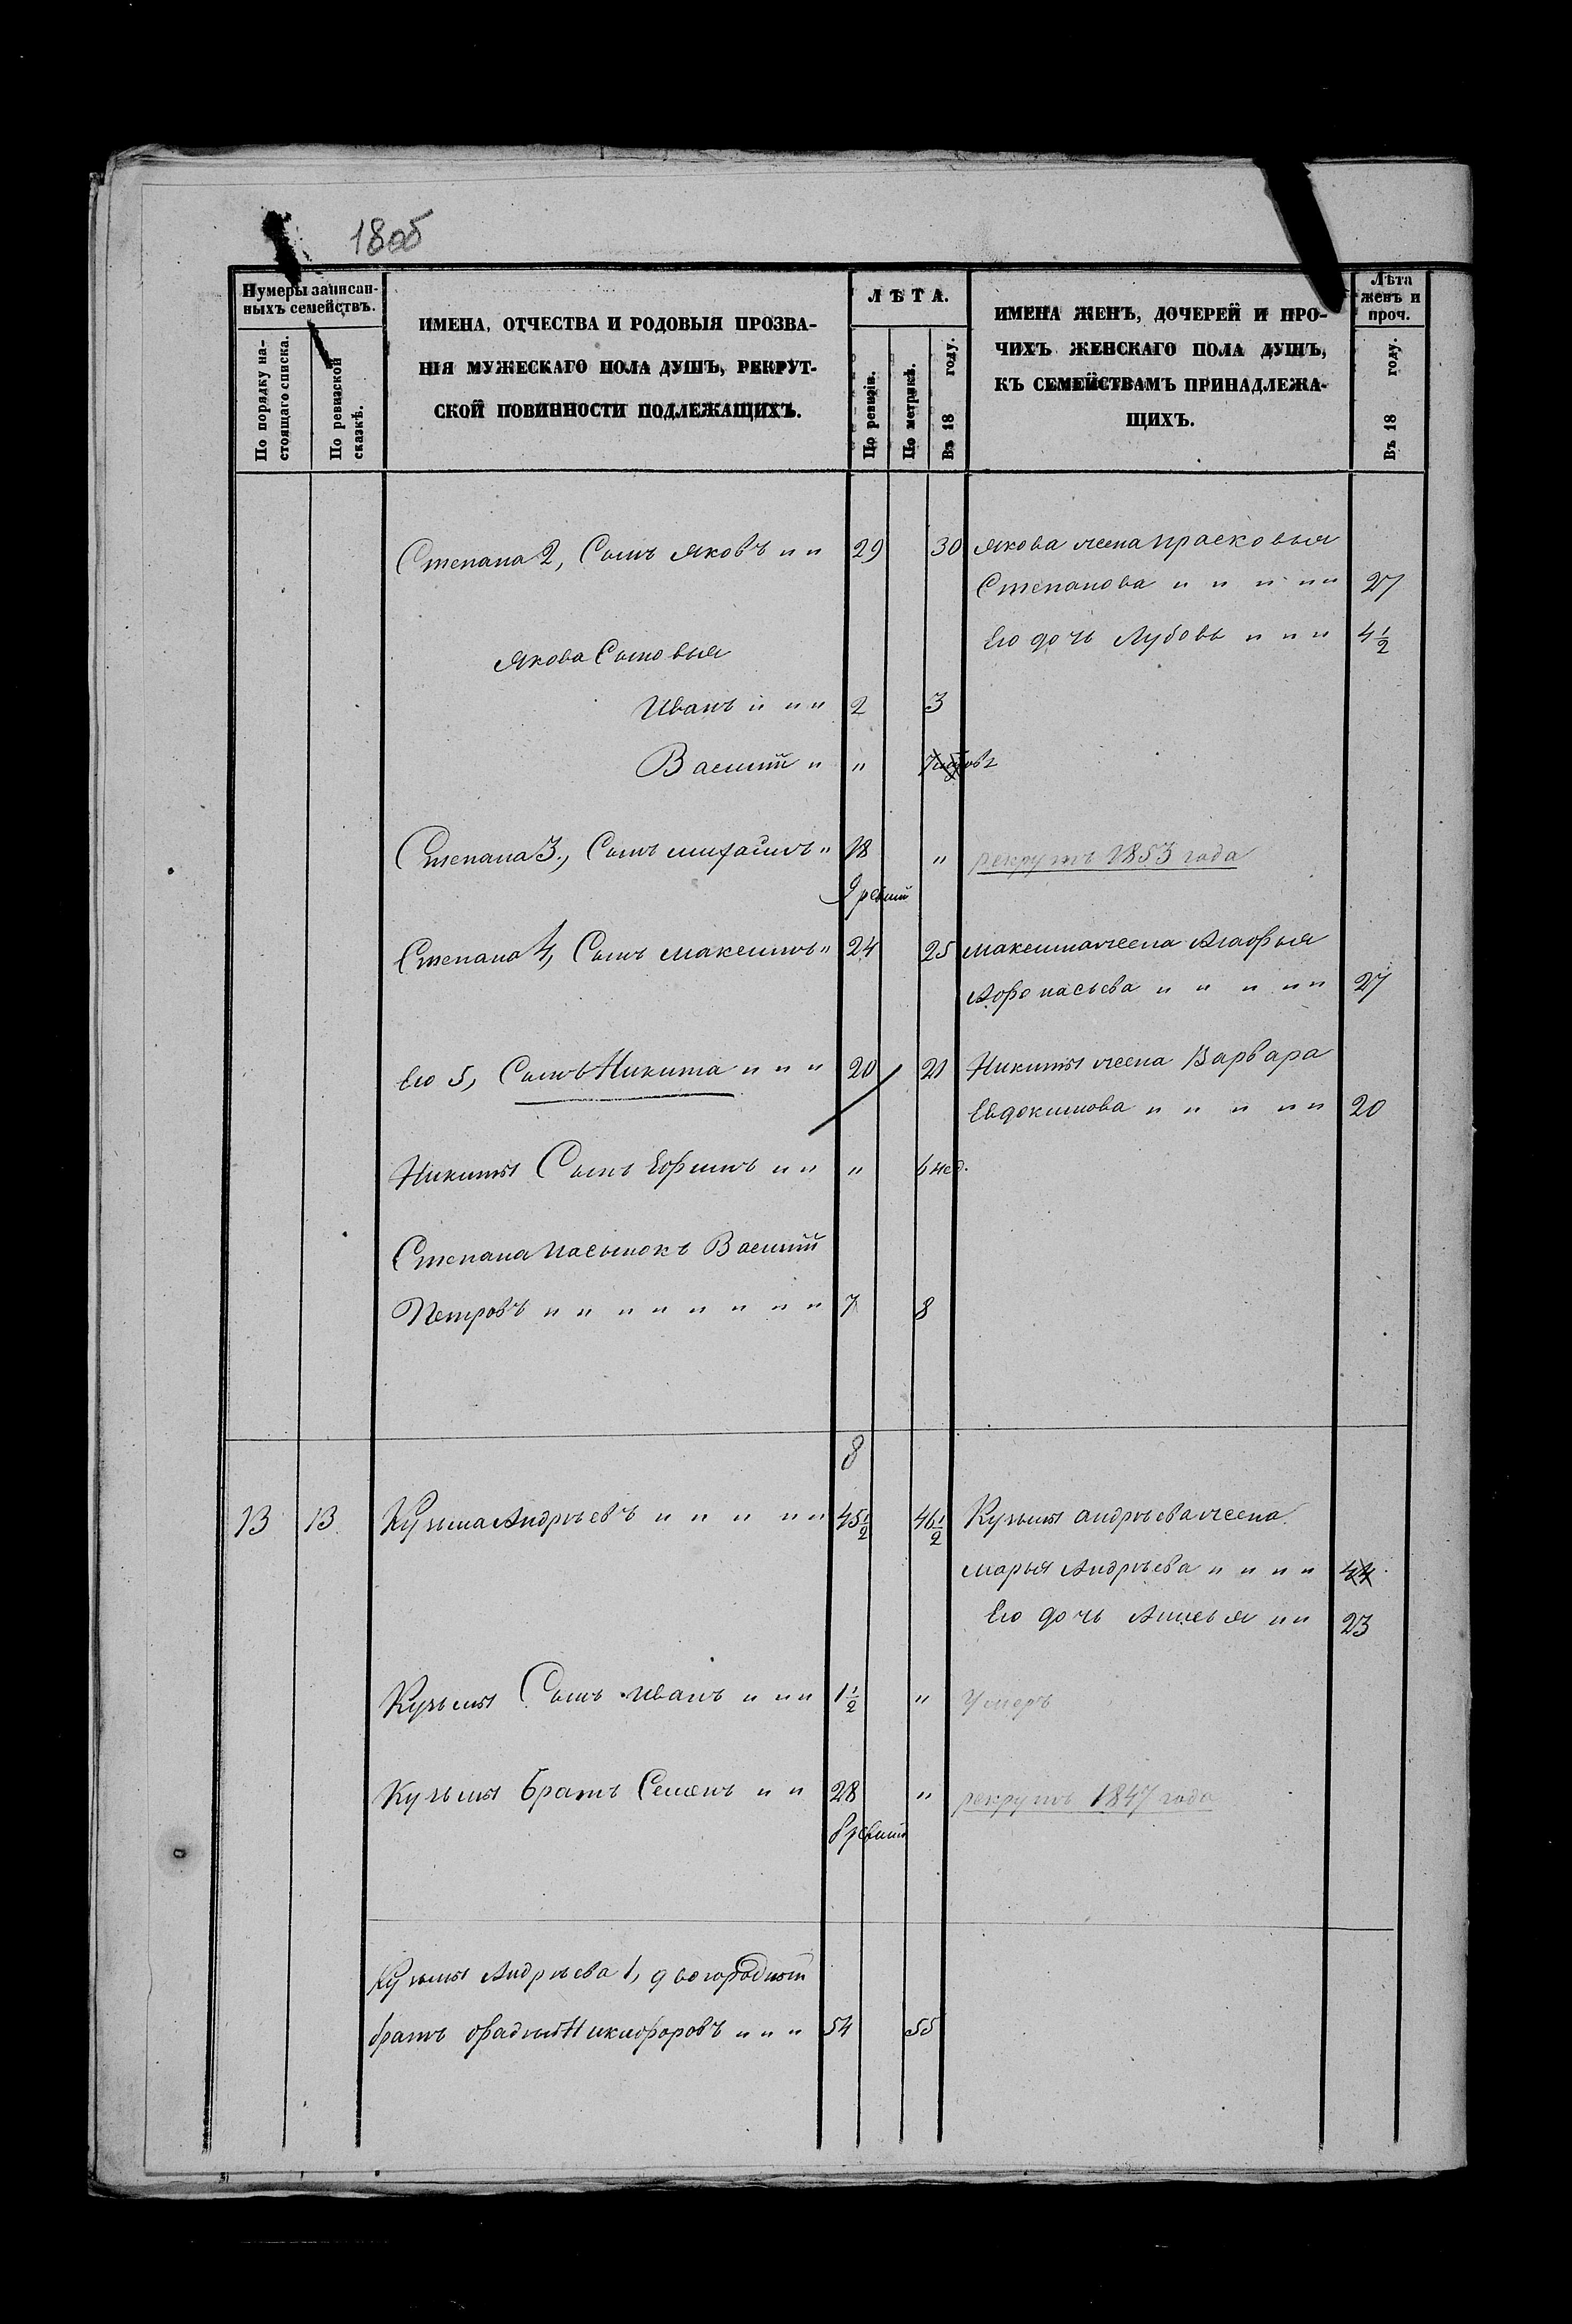 18об
Нумеры записан-
ныхъ семействъ.
По порядку на-
стоящаго списка.
По ревизской
сказкѣ.
ИМЕНА, ОТЧЕСТВА И РОДОВЫЯ ПРОЗВА-
НІЯ МУЖЕСКАГО ПОЛА ДУШЪ, РЕКРУТ-
СКОЙ ПОВИННОСТИ ПОДЛЕЖАЩИХЪ.
ЛѢТА.
По ревизіи.
По метрикѣ.
Въ 18 году.
ИМЕНА ЖЕНЪ, ДОЧЕРЕЙ И ПРО-
ЧИХЪ ЖЕНСКАГО ПОЛА ДУШЪ,
КЪ СЕМЕЙСТВАМЪ ПРИНАДЛЕЖА-
ЩИХЪ.
Лѣта
женъ и
проч.
Въ 18 году.
Степана 2, Сынъ Яковъ " " 29 30 Якова жена Прасковья
Степанова " " " " " 27
Его дочь Лубовь " " " 4 1/2
Якова Сыновья
Иванъ " " " 2 3
Василій " "
Степана 3, Сынъ Михаилъ " 18 " рекрутъ 1853 года
9 ревизіи
Степана 4, Сынъ Максимъ " 24 25 Максима жена Агафья
Афонасьева " " " " " 27
Его 5, Сынъ Никита " " " 20 21 Никиты жена Варвара
Евдокимова " " " " " 20
Никиты Сынъ Ефимъ " " " 6 нед.
Степана пасынокъ Василій
Петровъ " " " " " " " " 7 8
8
13 13 Кузьма Андрѣевъ " " " " " 45 1/2 46 1/2 Кузьмы Андрѣева жена
Марья Андрѣева " " " " 44
Его дочь Анисья " " 23
Кузьмы Сынъ Иванъ " " " 1 1/2 " Умеръ
Кузьмы братъ Семенъ " " 28 " рекрутъ 1847 года
8 ревизіи
Кузьмы Андрѣева 1, двоюродной
братъ Фадѣй Никифоровъ " " " 54 55